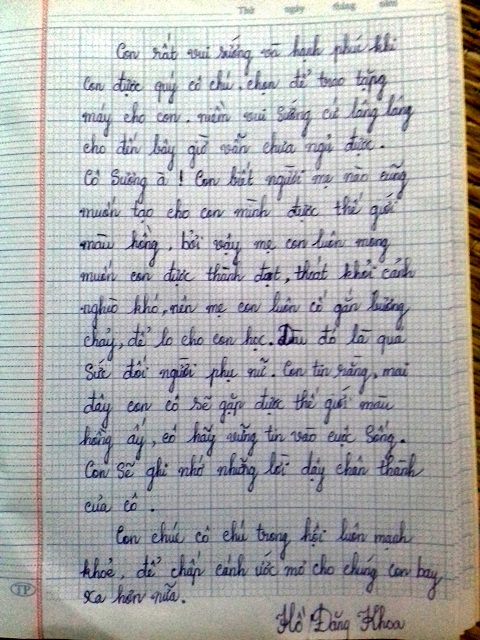 Thứ ngày tháng năm
Con rất vui sướng và hạnh phúc khi
con được quý cô chú, chọn để trao tặng
máy cho con. niềm vui sướng cứ lâng lâng
cho đến bây giờ vẫn chưa ngủ được.
Cô Sương à! Con biết người mẹ nào cũng
muốn tạo cho con mình được thế giới
màu hồng, bởi vậy mẹ con luôn mong
muốn con được thành đạt, thoát khỏi cảnh
nghèo khó, nên mẹ con luôn cố gắn bương
chảy, để lo cho con học. Dẫu đó là quá
sức đối người phụ nữ. Con tin rằng, mai
đây con cô sẽ gặp được thế giới màu
hồng ấy, cô hãy vững tin vào cuộc sống.
Con sẽ ghi nhớ những lời dạy chân thành
của cô.
Con chúc cô chú trong hội luôn mạnh
khoẻ, để chấp cánh ước mơ cho chúng con bay
xa hơn nữa.
TP
Hồ Đăng Khoa